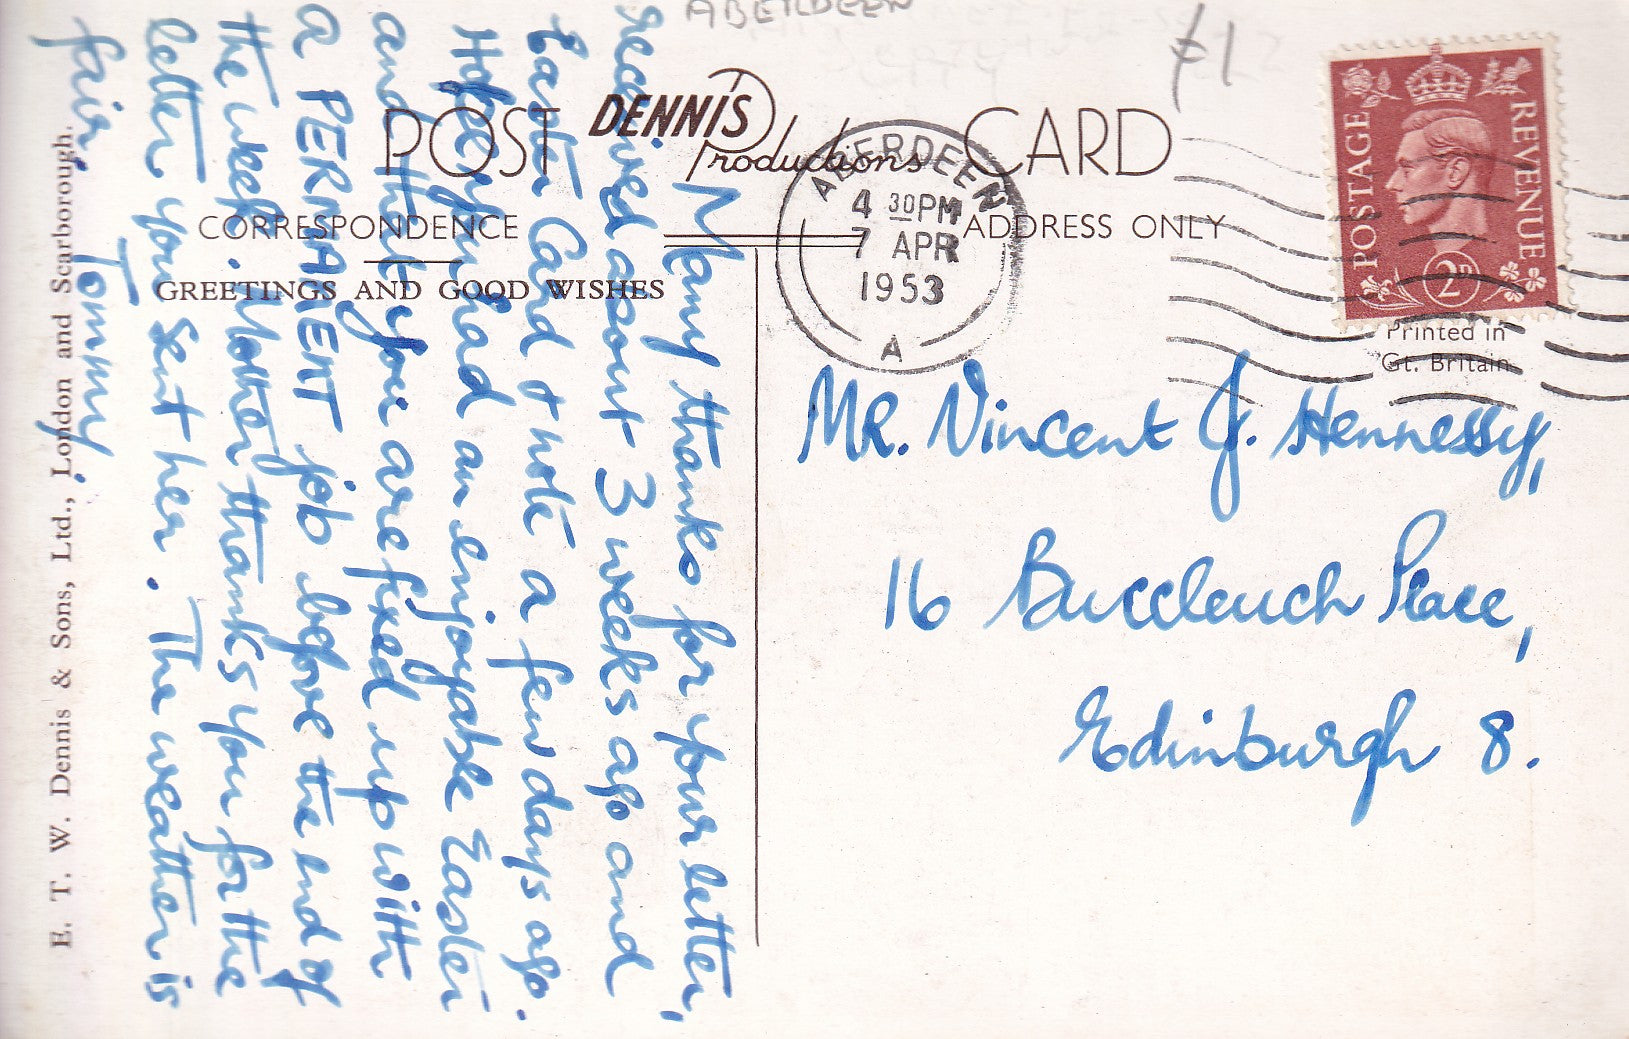 ABERDEEN
£1
POST DENNIS Productions CARD
CORRESPONDENCE
ADDRESS ONLY
GREETINGS AND GOOD WISHES
ABERDEEN
4 30PM
7 APR
1953
A
POSTAGE
REVENUE
2D
Printed in
Gt. Britain
Many thanks for your letter,
received about 3 weeks ago and
Easter Card & note a few days ago.
Hope you had an enjoyable Easter
and that you are fixed up with
a PERMAENT job before the end of
the week. Mother thanks you for the
letter you sent her. The weather is
fair.
Tommy.
MR. Vincent J. Hennessy,
16 Buccleuch Place,
Edinburgh 8.
E. T. W. Dennis & Sons, Ltd., London and Scarborough.